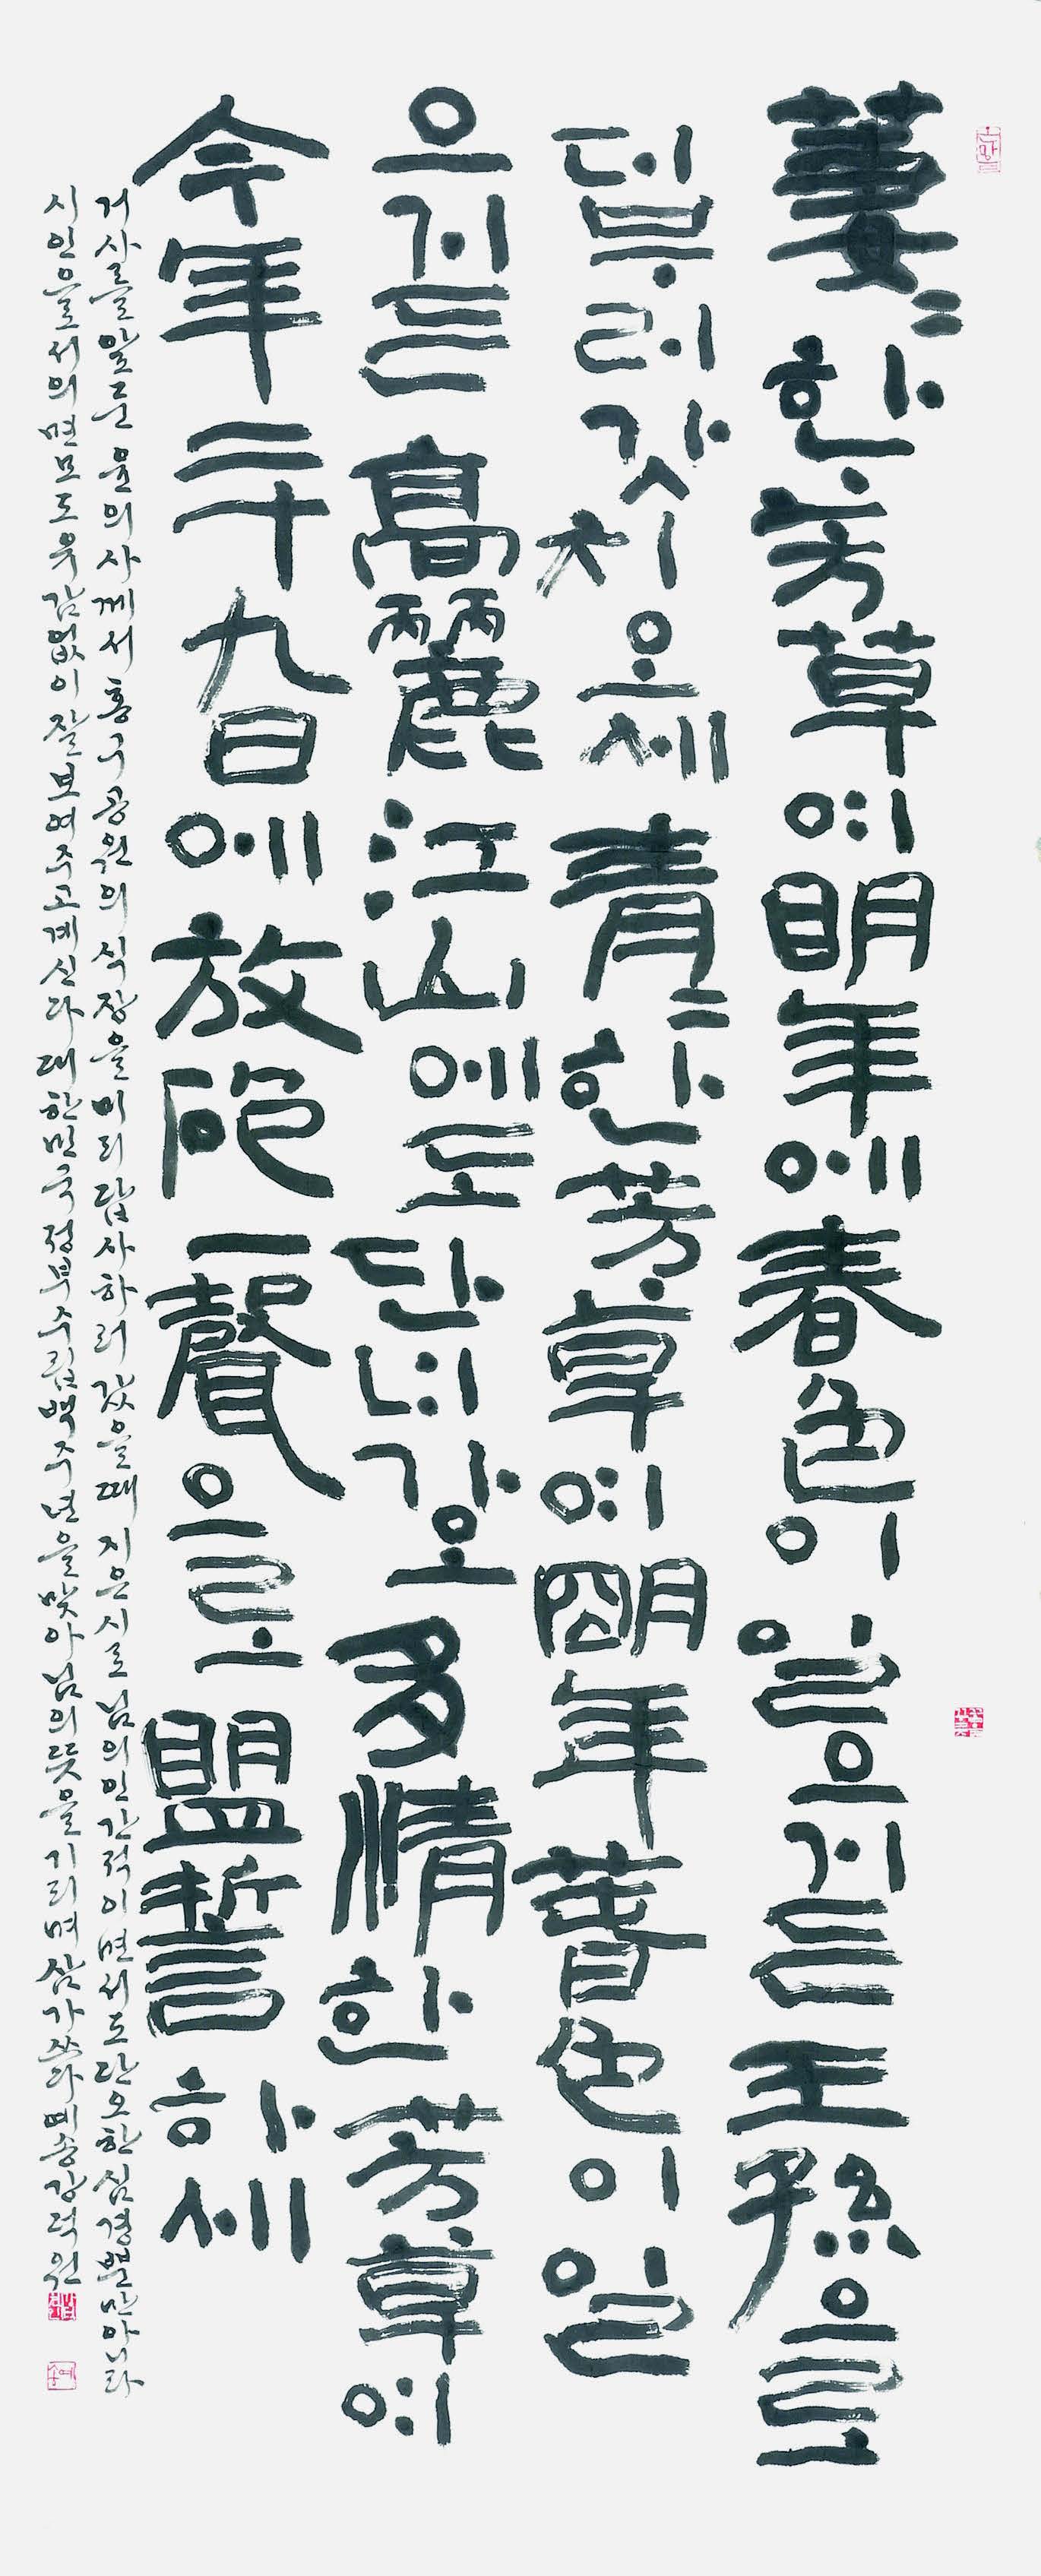 萋〻한 芳草여 明年에 春色이 일으거든 王孫으로
더부러 갓치 오세 靑〻한 芳草여 明年 春色이 일
으거든 高麗 江山에도 단녀가오 多情한 芳草여
今年 二十九日에 放砲一聲으로 盟誓하세
거사를 앞둔 윤의사께서 홍구공원의 식장을 미리 답사하러 갔을때 지은 시로 님의 인간적이면서도 단호한 심경뿐만 아니라
시인으로서의 면모도 유감없이 잘 보여주고 계신다 대한민국 정부수립 백주년을 맞아 님의 뜻을 기리며 삼가 쓰다 예송 강덕원